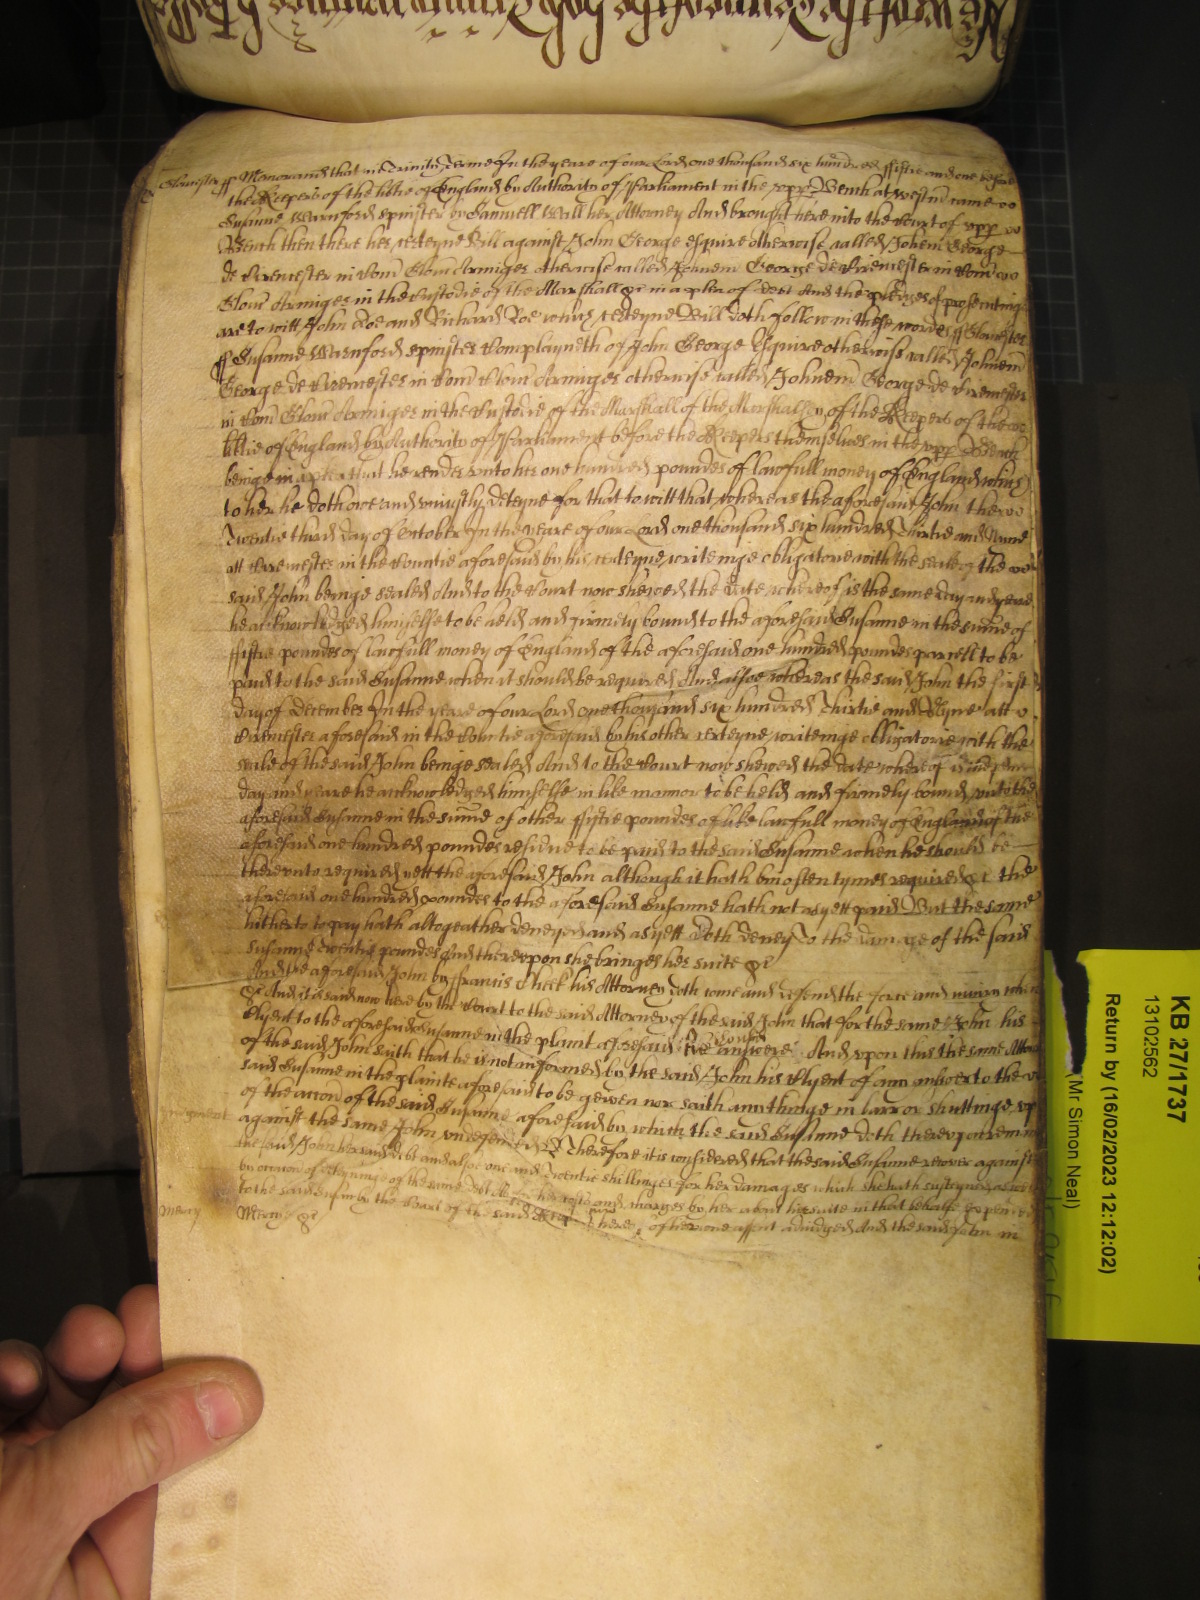 Gloucester ss Memorand that in Trinity Terme In the yeare of our Lord one thousand six hundred fiftie and one before
the Keepers of the libtie of England by Authority of Parliament in the upp Bench at Westm came
Susanne Warnford spinster by Samuell Wall her Attorney And brought here into the Court of upp
Bench then there her certeyne Bill against John George esquire otherwise called Johem George
de Cirencester in Com Glouc Armiger otherwise called Johnem George de Cirencester in Com
Glouc Armiger in the Custodie of the Marshall &c in a plea of debt And the pledges of prosecuting
are to witt John Doe and Richard Roe which certeyne Bill doth follow in these wordes ss Gloucester
ss Susanne Warnford spinster Complayneth of John George Esquire otherwise called Johnem
George de Cirencester in Com Glouc Armiger otherwise called Johnem George de Cirencester
in Com Glouc Armiger in the Custodie of the Marshall of the Marshallsey of the Keepers of the
libtie of England by Authority of Parliament before the Keepers themselves in the upp Bench
beinge in a plea that he render unto her one hundred poundes of lawfull money of England which
to her he doth owe and uniustly deteyne for that to witt that whereas the aforesaid John the
Twentie third day of October In the yeare of our Lord one thousand six hundred Thirtie and Nyne
att Cirencester in the Countie aforesaid by his certeyne writeinge obligatorie with the seale of the
said John beinge sealed And to the Court now shewed the date whereof is the same day and yeare
he acknowledged himselfe to be held and firmely bound to the aforesaid Susanne in the summe of
fiftie poundes of lawfull money of England of the aforesaid one hundred poundes parcell to be
paid to the said Susanne when it should be required And alsoe whereas the said John the first
day of December In the yeare of our Lord one thousand six hundred Thirtie and Nyne att
Cirencester aforesaid in the Countie aforesaid by his other certeyne writeinge obligatorie with the
seale of the said John beinge sealed And to the Court now shewed the date whereof is the same
day and yeare he acknowledged himselfe in like mannor to be held and firmely bound unto the
aforesaid Susanne in the summe of other fiftie poundes of like lawfull money of England of the
aforesaid one hundred poundes residue to be paid to the said Susanne when he should be
thereunto required yett the aforesaid John although it hath bin often tymes required &c the
aforesaid one hundred poundes to the aforesaid Susanne hath not as yett paid But the same
hitherto to pay hath altogeather deneyed and as yett doth deney To the damage of the said
Susanne Twentie poundes And thereupon she bringes her suite &c
And the aforesaid John by Francis Cheek his Attorney doth come and defend the force and iniury when
&c And it is said now here by the Court to the said Attorney of the said John that for the same John his
Clyent to the aforesaid Susanne in the plaint aforesaid he answere And upon this the same Attor
of the said John saith that he is not informed by the said John his Clyent of any answer to the
said Susanne in the plainte aforesaid to be geven nor saith any thinge in barr or shuttinge up
of the accon of the said Susanne aforesaid by which the said Susanne doth thereupon remain
Judgment against the same John undefended &c Therefore it is considered that the said Susanne recover against
the said John her said debt and alsoe one and Twentie shillinges for her damages which she hath susteyned
by occasion of deteyninge of the same debt As for her costs and charges by her about her suite in that behalfe expended
to the said Susanne by the Court of the said here of her one assent adiudged And the said John in
Mercy Mercy &c
KB 27/1737
13102562
Return by (16/02/2023 12:12:02)
Mr Simon Neal)